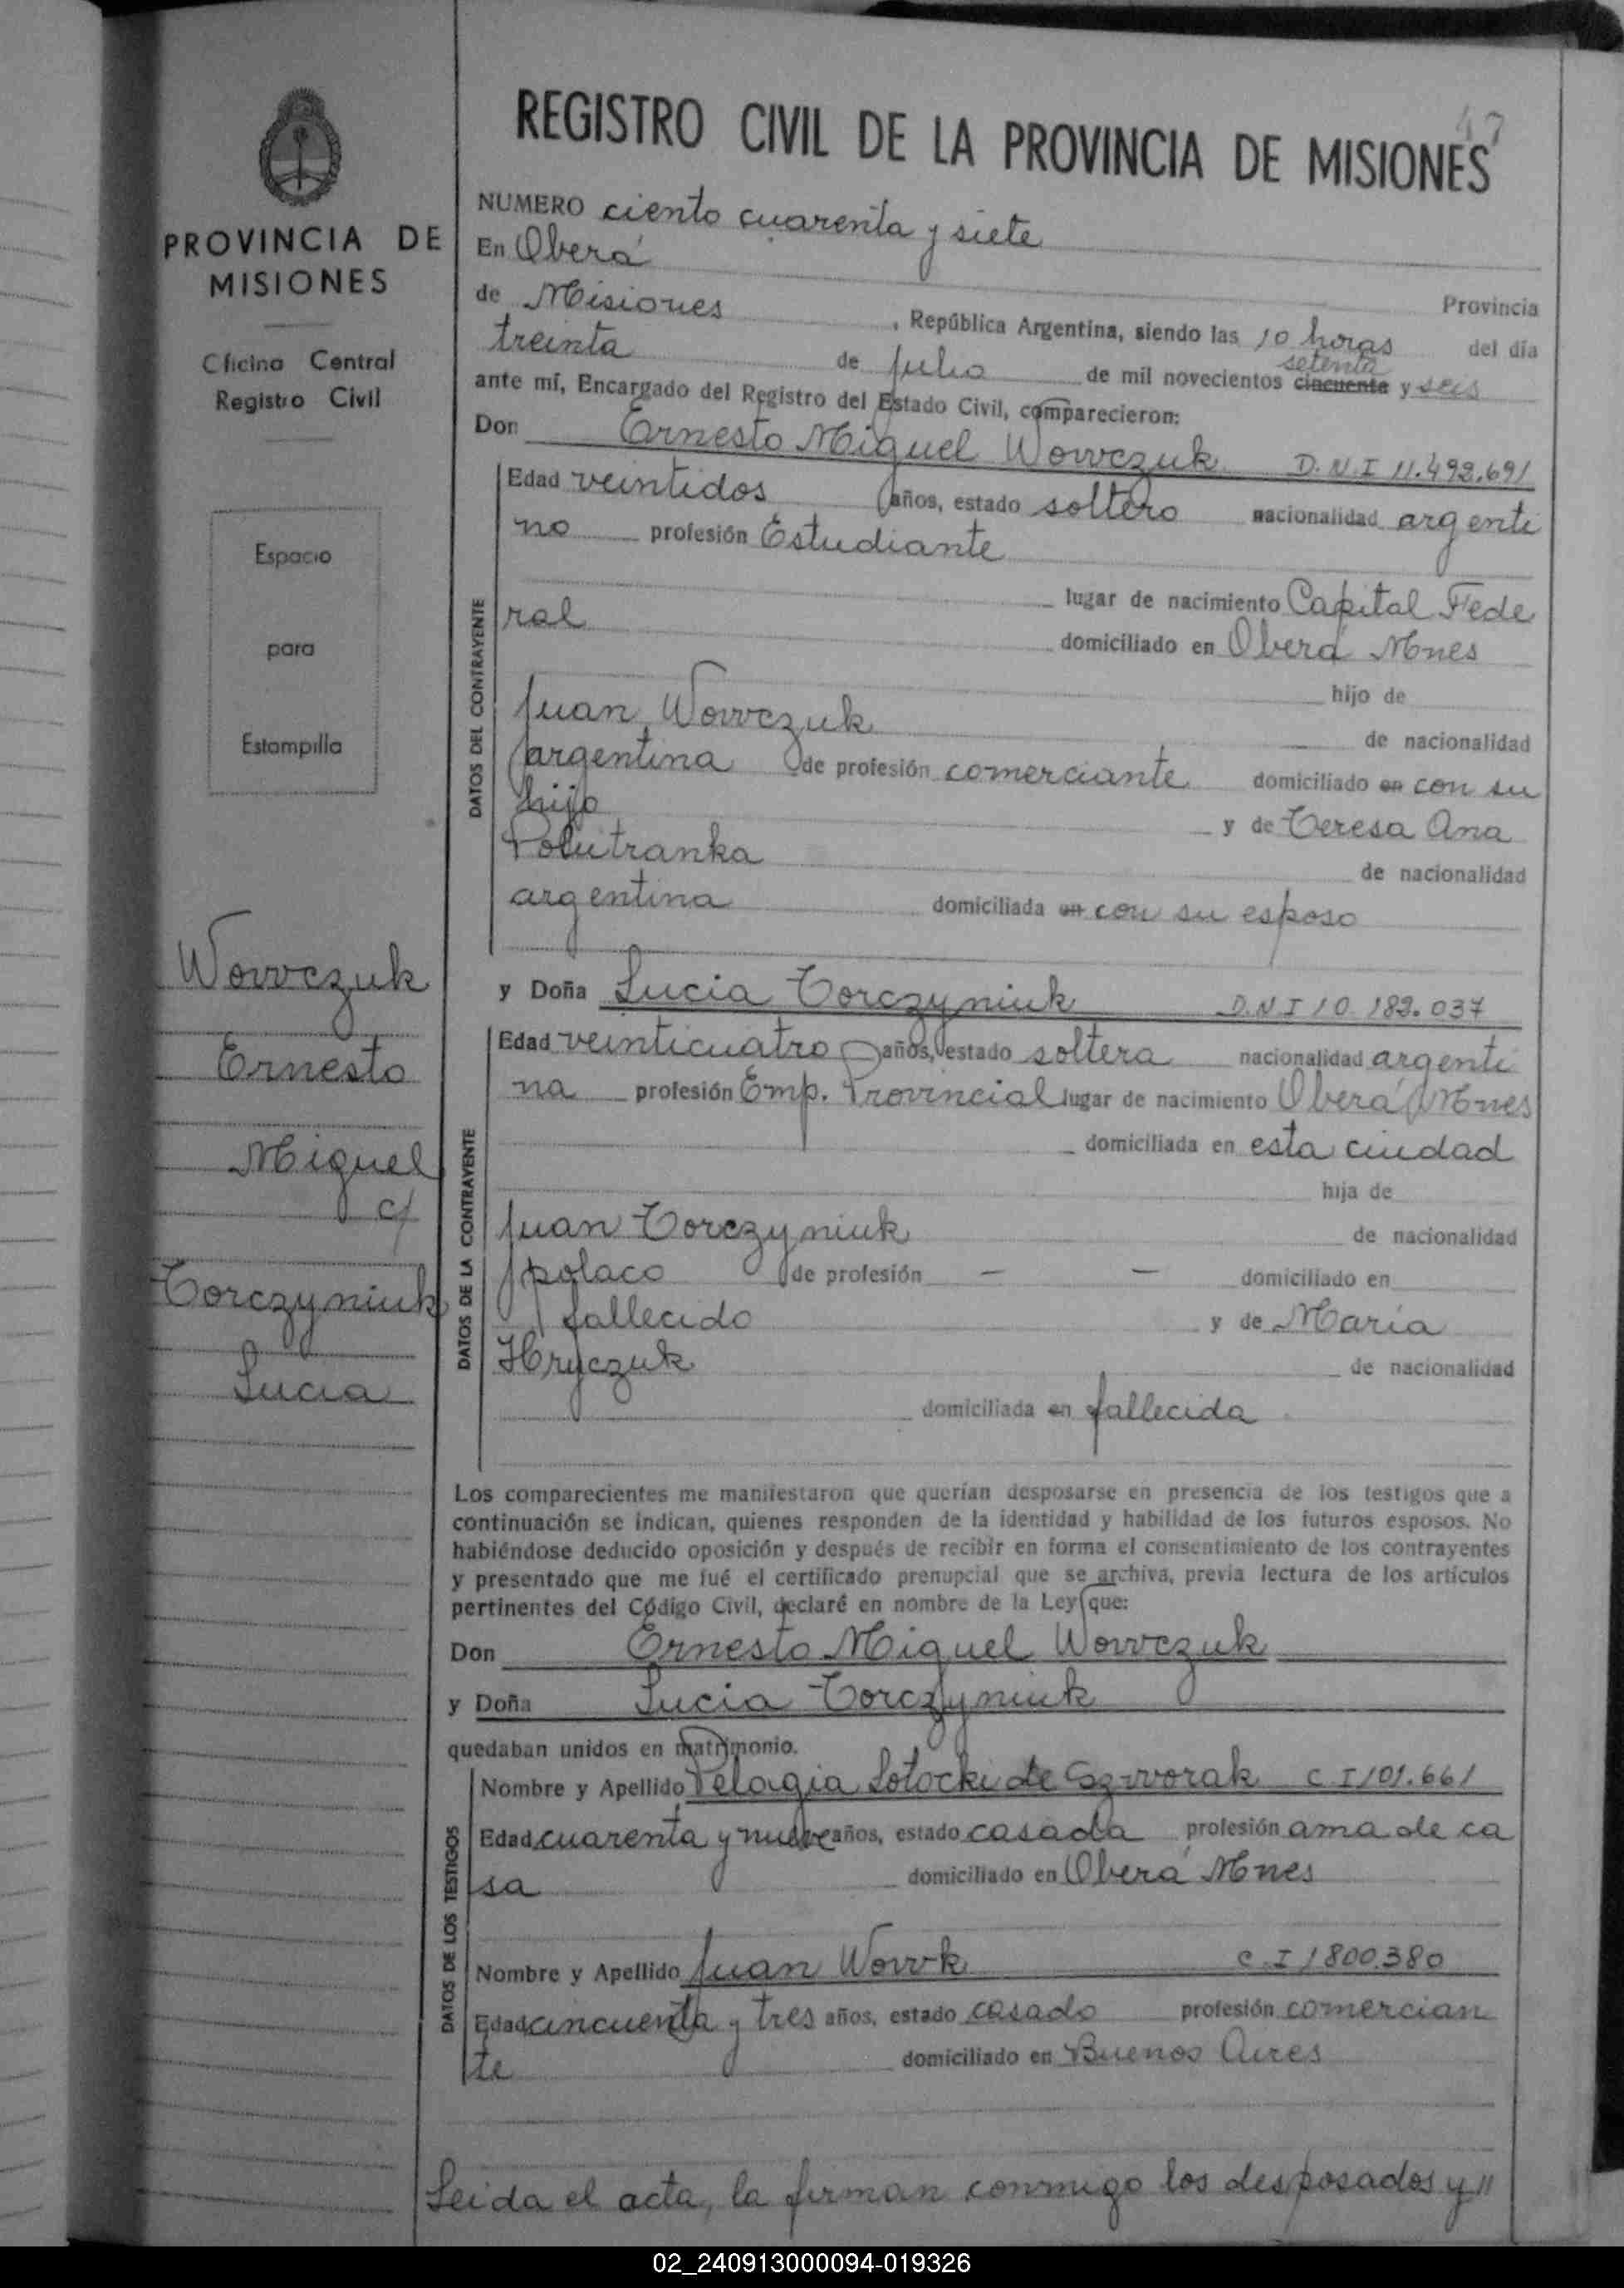 47
REGISTRO CIVIL DE LA PROVINCIA DE MISIONES
PROVINCIA DE
MISIONES
Oficina Central
Registro Civil
Espacio
para
Estampilla
Wowczuk
Ernesto
Miguel
c/
Torczyniuk
Lucia
NUMERO ciento cuarenta y siete
En Oberá
Provincia
de Misiones , República Argentina, siendo las 10 horas del día
treinta de julio de mil novecientos cincuenta setenta y seis
ante mí, Encargado del Registro del Estado Civil, comparecieron:
Don Ernesto Miguel Wowczuk D.N.I 11.492.691
DATOS DEL CONTRAYENTE
Edad veintidos años, estado soltero nacionalidad argenti
no profesión Estudiante
lugar de nacimiento Capital Fede
ral domiciliado en Oberá Mnes
hijo de
Juan Wowczuk de nacionalidad
argentina de profesión comerciante domiciliado en con su
hijo y de Teresa Ana
Polutranka de nacionalidad
argentina domiciliada en con su esposo
y Doña Lucia Torczyniuk D.N.I 10.182.037
DATOS DE LA CONTRAYENTE
Edad veinticuatro años, estado soltera nacionalidad argenti
na profesión Emp. Provincial lugar de nacimiento Oberá Mnes
domiciliada en esta ciudad
hija de
Juan Torczyniuk de nacionalidad
polaco de profesión — — domiciliado en
fallecido y de María
Hryczuk de nacionalidad
domiciliada en fallecida
Los comparecientes me manifestaron que querían desposarse en presencia de los testigos que a
continuación se indican, quienes responden de la identidad y habilidad de los futuros esposos. No
habiéndose deducido oposición y después de recibir en forma el consentimiento de los contrayentes
y presentado que me fué el certificado prenupcial que se archiva, previa lectura de los artículos
pertinentes del Código Civil, declaré en nombre de la Ley que:
Don Ernesto Miguel Wowczuk
y Doña Lucia Torczyniuk
quedaban unidos en matrimonio.
DATOS DE LOS TESTIGOS
Nombre y Apellido Pelagia Sotocki de Szworak C I 101.661
Edad cuarenta y nueve años, estado casada profesión ama de ca
sa domiciliado en Oberá Mnes
Nombre y Apellido Juan Wowk C.I 1800.380
Edad cincuenta y tres años, estado casado profesión comercian
te domiciliado en Buenos Aires
Leida el acta, la firman conmigo los desposados y //
02_240913000094-019326